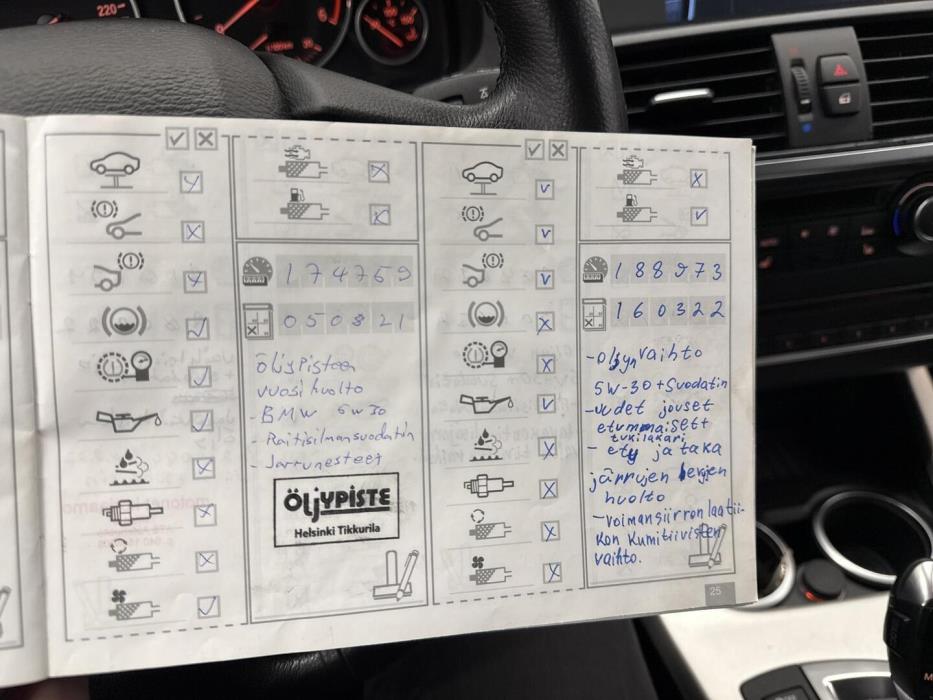 220
6
174769
050821
öljypisteen
vuosihuolto
-BMW 5w30
-Raitisilmansuodatin
-Jarrunesteet
ÖLJYPISTE
Helsinki Tikkurila
188973
160322
-öljynvaihto
5W-30+Suodatin
-uudet jouset
etummaiset+
tukilakari
- ety ja taka
järrujen
huolto
-voimansiirron laatii-
kon Kumitiivisteen
vaihto.
25
M